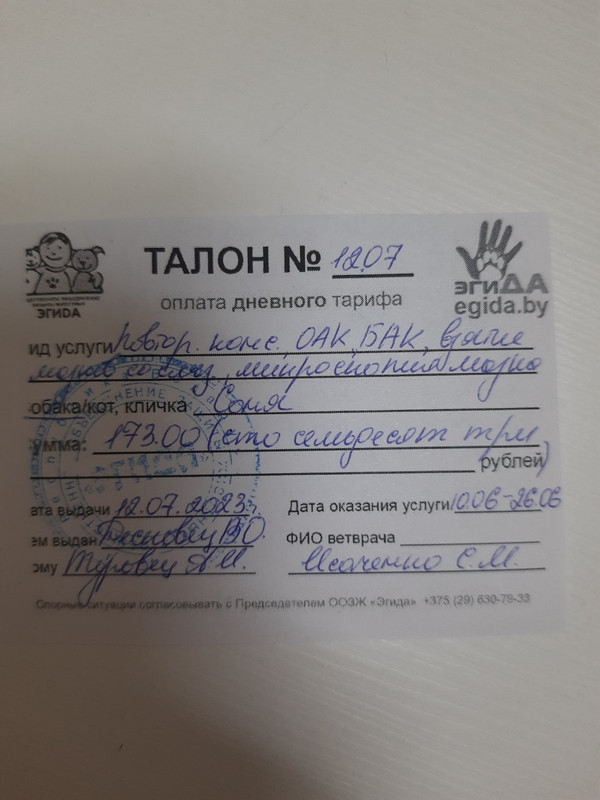 ТАЛОН № 12.07
оплата дневного тарифа
ЭГИДА
ЭГИДА
egida.by
ид услуги Повтор. конс., ОАК, БАК, взятие
мазков, микроскопия мазка
обака/кот, кличка Соня
умма: 173.00 (сто семьдесят три
рублей)
ата выдачи 12.07.2023г. Дата оказания услуги 10.06-26.06
ем выдан В.О. ФИО ветврача
ому Туровец Исаченко С.М.
Спорные ситуации согласовывать с Председателем ООЗЖ «Эгида» +375 (29) 630-79-33